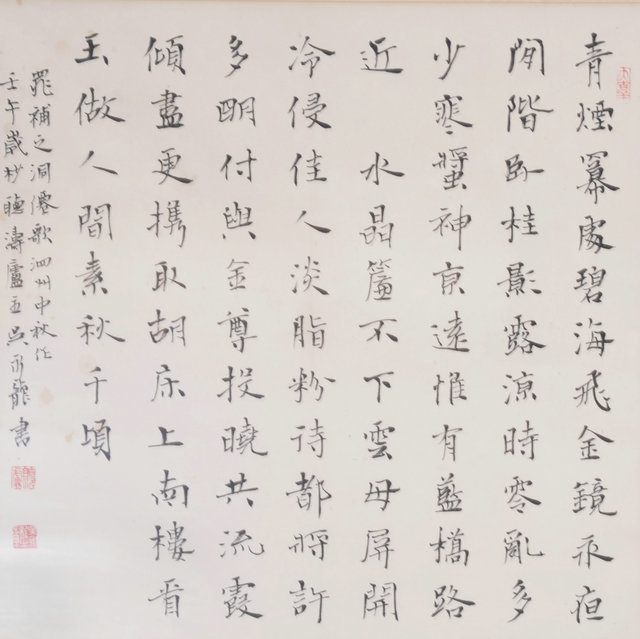 青煙冪處碧海飛金鏡永夜
閑階臥桂影露涼時零亂多
少寒螿神京遠惟有藍橋路
近 水晶簾不下雲母屏開
冷侵佳人淡脂粉待都將許
多明付與金尊投曉共流霞
傾盡更攜取胡床上南樓看
玉做人間素秋千頃
晁補之洞僊歌泗州中秋作
壬午歲杪聽濤廬主吳龍書